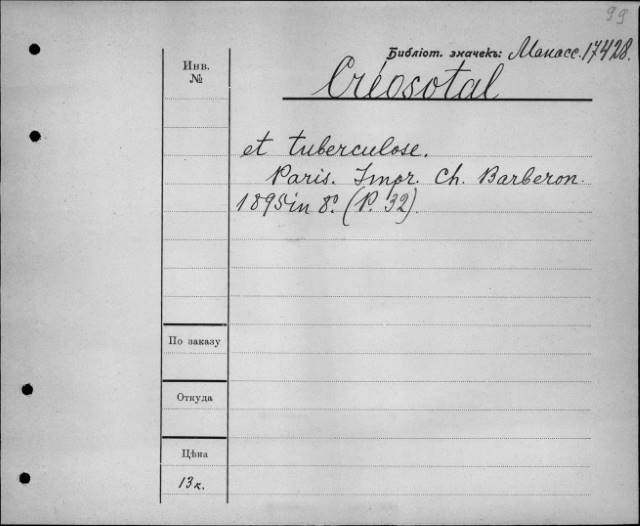 99
Библіот. значекъ: Манасс. 17428.
Инв.
№
Créosotal
et tuberculose.
Paris. Impr. Ch. Barberon.
1895 in 8º. (P. 32).
По заказу
Откуда
Цѣна
13 к.